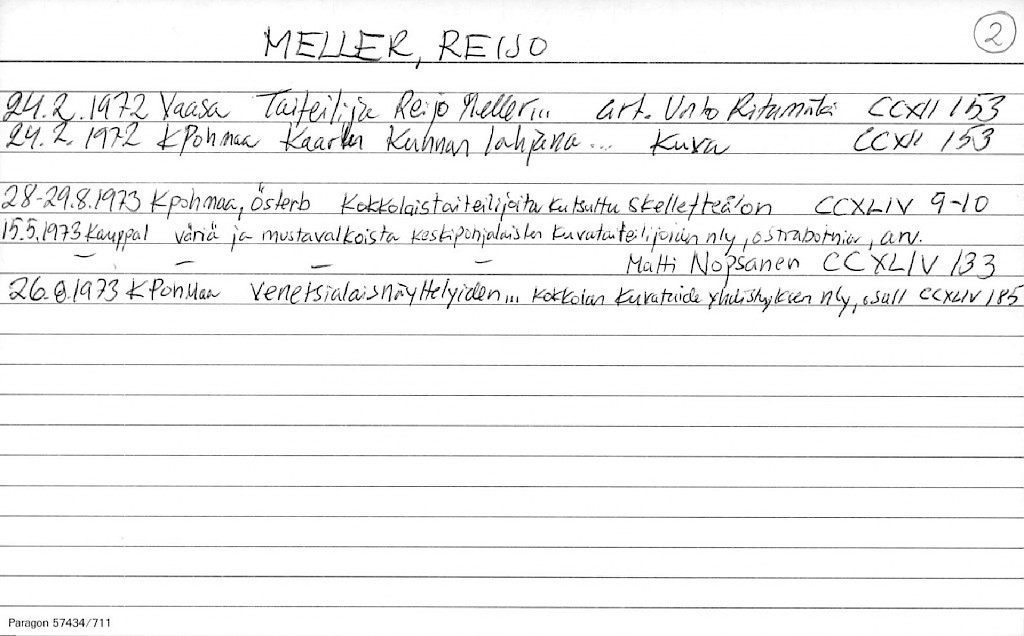 2
MELLER, REIJO
24.2.1972 Vaasa Taiteilija Reijo Meller... art. Unto Ritamäki CCXII 153
24.2.1972 KPohmaa Kaarlen Kuhnan lahjana... Kuva CCXII 153
28-29.8.1973 Kpohmaa, Österb Kokkolaistaiteilijoita kutsuttu Skellefteå'on CCXLIV 9-10
15.5.1973 Kauppal väriä ja mustavalkoista keskipohjalaisten kuvataiteilijoiden nly, ostrabotnia, arv.
— — — — Matti Nopsanen CCXLIV 133
26.8.1973 KPohmaa Venetsialaisnäyttelyiden... Kokkolan Kuvataideyhdistyksen nly, osall CCXLIV 185
Paragon 57434/711